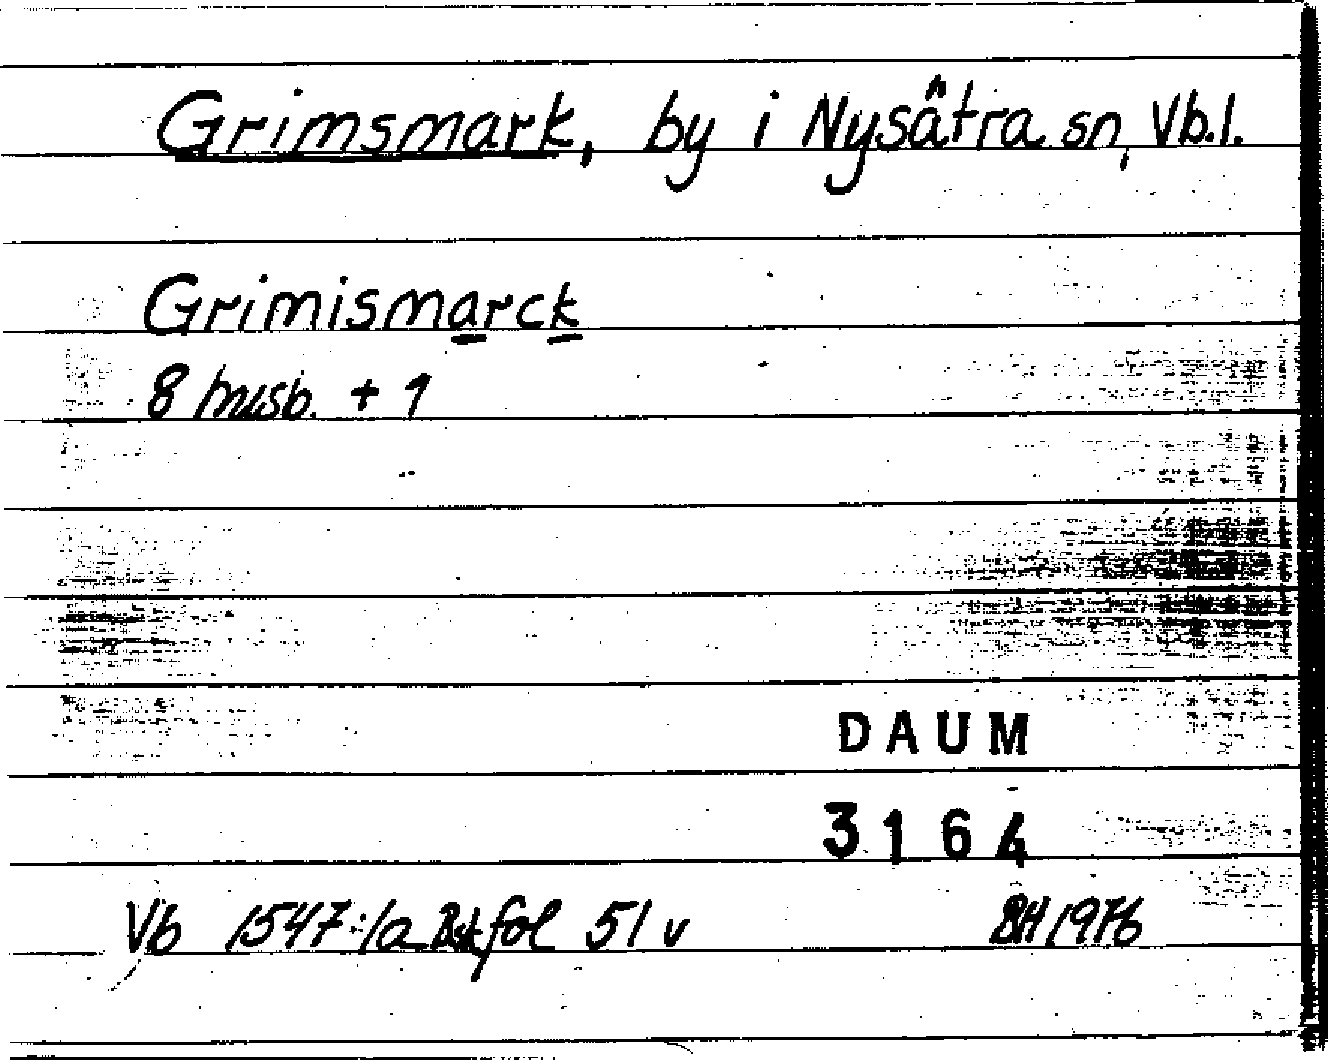 Grimsmark, by i Nysätra sn, Vb.l.
Grimismarck
8 husb. + 1
DAUM
3164
Vb 1547:1a Bskfol 51 v
BH 1976